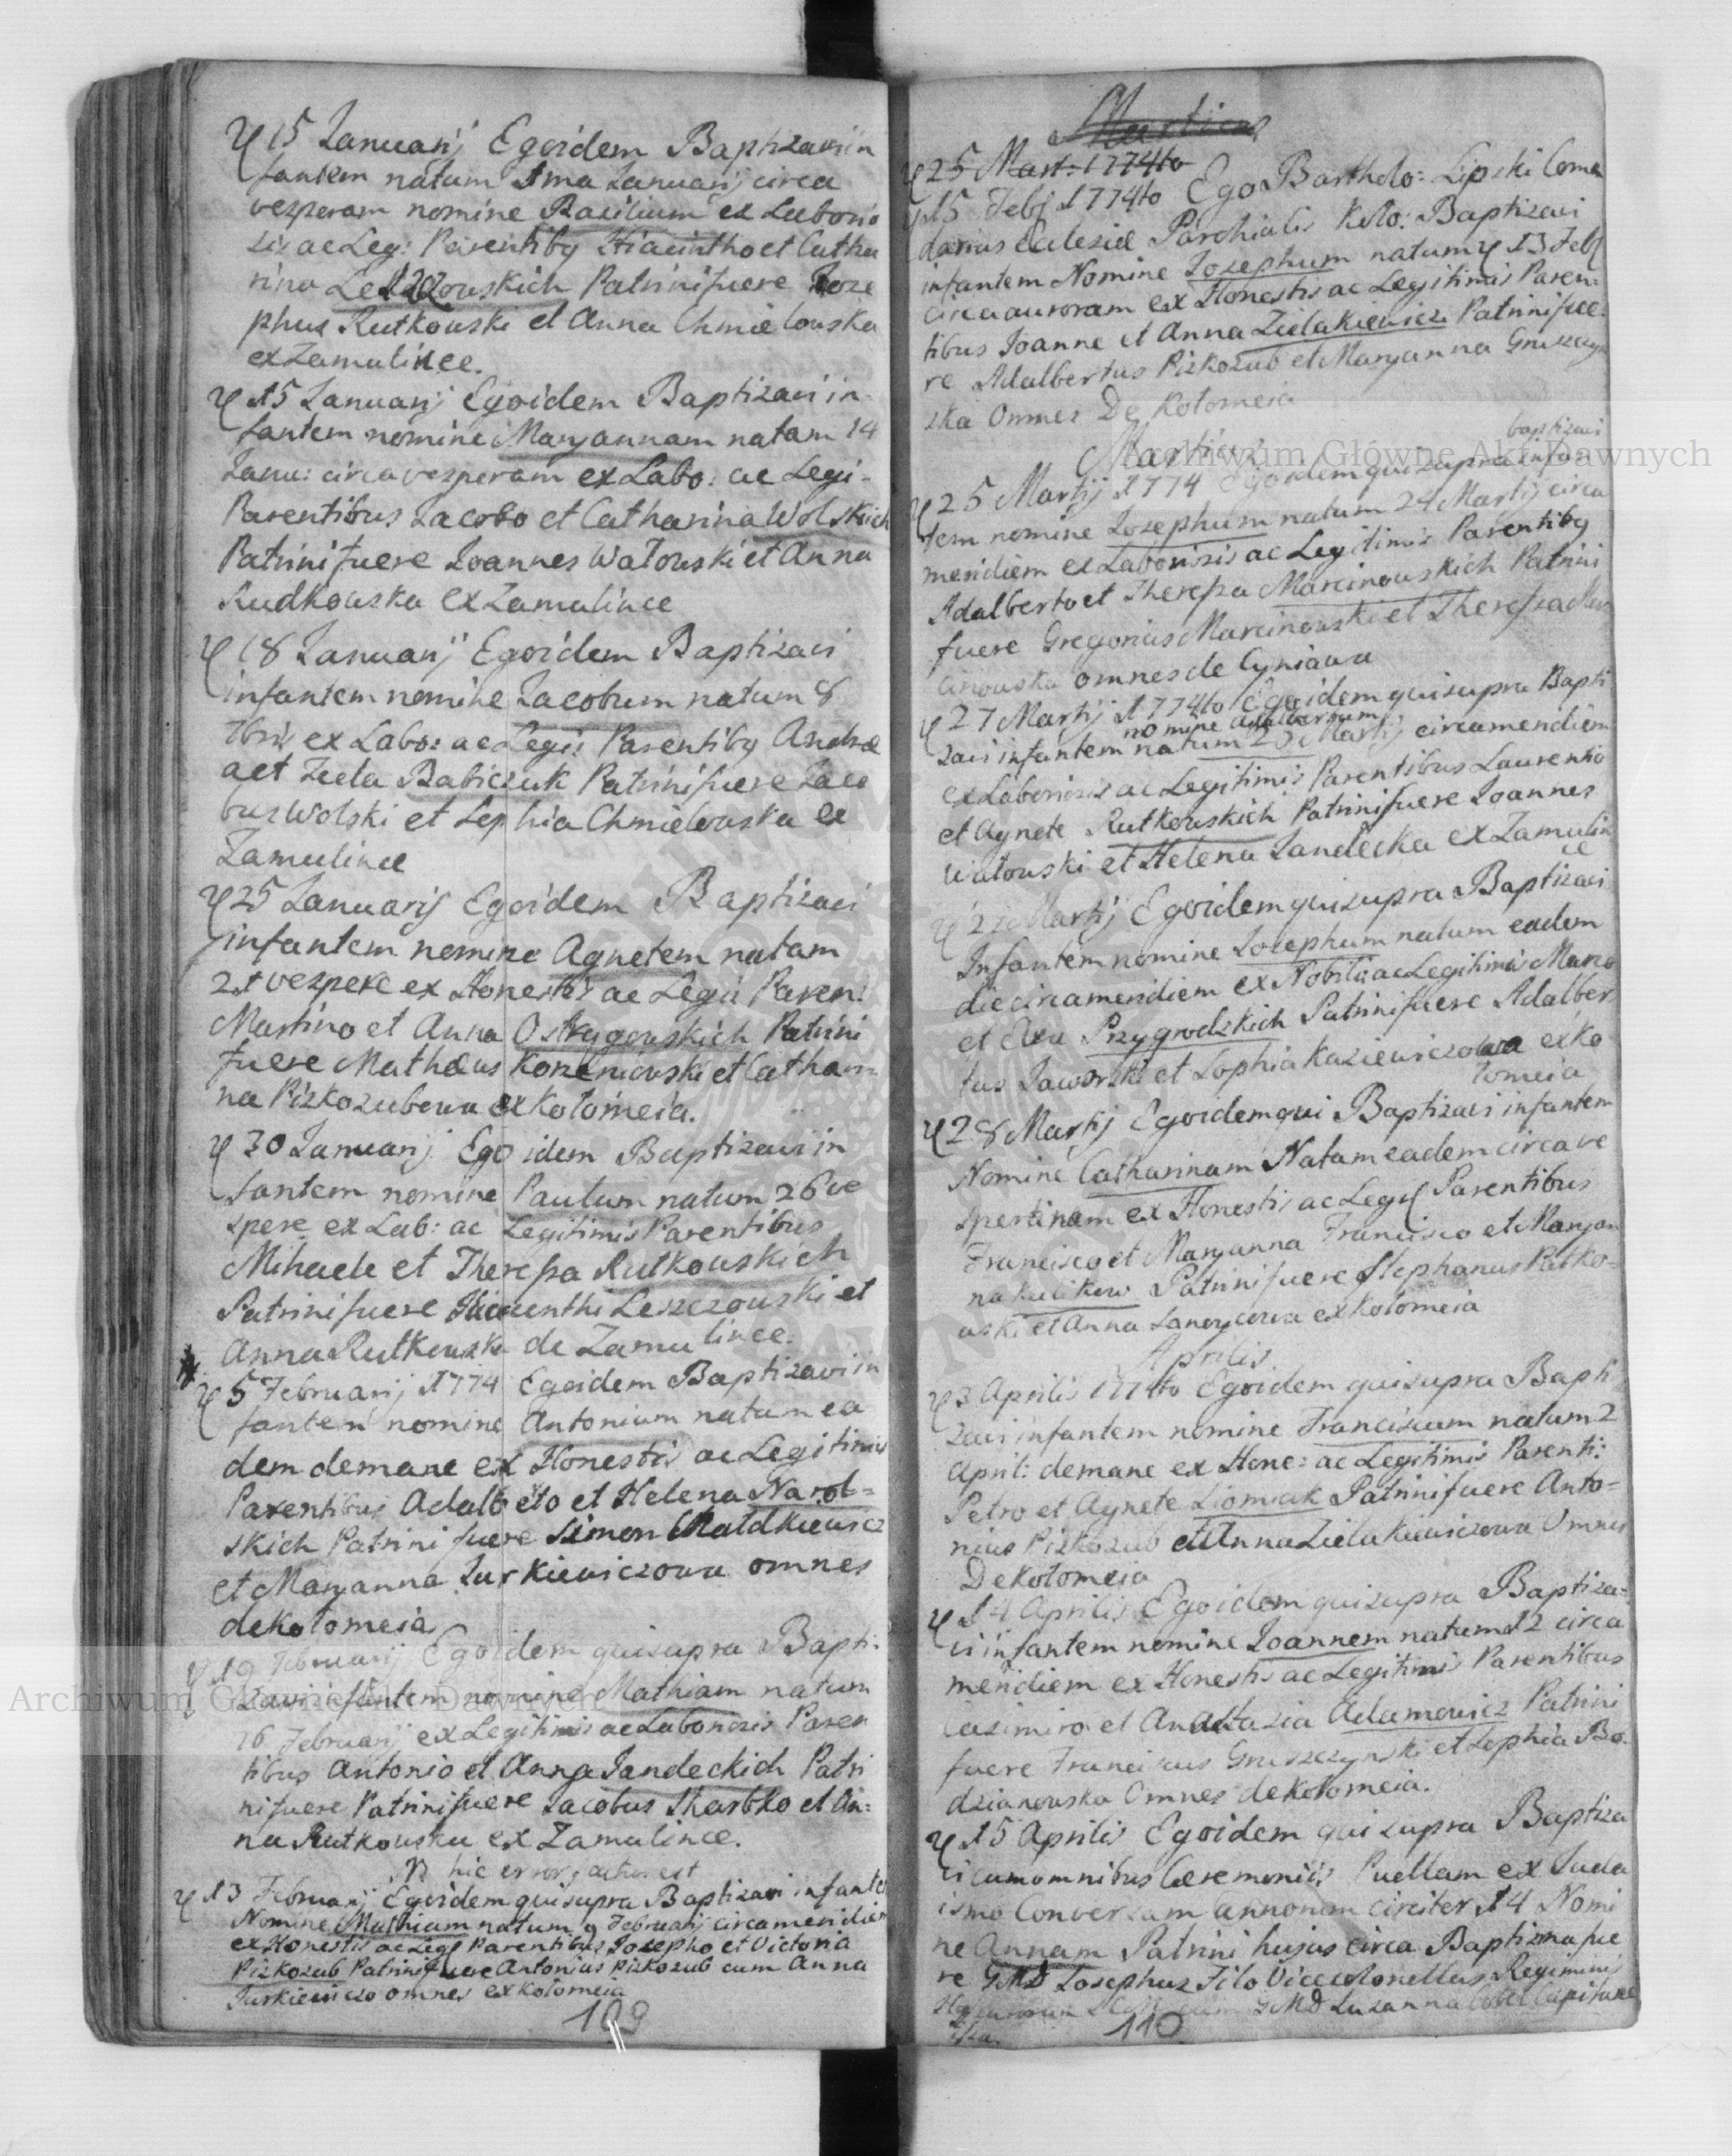 15 Januarij Egoidem Baptizavi in
fantem natum 1ma Januarij circa
vesperam nomine Basilium ex Laborio
sis ac Leg: Parentiby Hiacintho et Catha
rina Leszczowskich Patrini fuere Joze
phus Rutkowski et Anna Chmielowska
ex Zamulince.
15 Januarij Egoidem Baptizavi in
fantem nomine Maryannam natam 14
Janu: circa vesperam ex Labo: ac Legi-
Parentibus Jacobo et Catharina Wolskich
Patrini fuere Joannes Watowski et Anna
Rudkowska ex Zamulince
18 Januarij Egoidem Baptizavi
infantem nomine Jacobum natum 8
ex Labo: ac Legi: Parentiby Andrae
a et Babiczuk Patrini fuere Jaco
bus Wolski et Sophia Chmielowska ex
Zamulince
25 Januarij Egoidem Baptizavi
infantem nomine Agnetem natam
21 vespere ex Honestis ac Legii Paren:
Martino et Anna Ostrzgowskich Patrini
fuere Mathaeus Korzeniowski et Cathari
na Pizkozubowa ex Kolomeia.
30 Januarij Ego idem Baptizavi in
fantem nomine Paulum natum 26 ve
spere ex Lab: ac Legitimis Parentibus
Mihaele et Theressa Rutkowskich
Patrini fuere Leszczowski et
Anna Rutkowska de Zamulince.
5 Februarij 1774 Egoidem Baptizavi in
fantem nomine Antonium natum ea
dem de mane ex Honestis ac Legitimis
Parentibus Adalberto et Helena Narol=
skich Patrini fuere Simon Matdkiewicz
et Maryanna Jurkiewiczowa omnes
de Kolomeia
19 Februarij Egoidem qui supra Bapti:
zavi infantem nomine Mathiam natum
16 Februarij ex Legitimis ac Laboriosis Paren
tibus Antonio et Anna Jandeckich Patri
ni fuere Patrini fuere Jacobus Skarbko et An=
na Rutkowska ex Zamulince.
hic error actus est
13 Februarij Egoidem qui supra Baptizavi infante
Nomine Mathiam natum 9 Februarij circa meridiem
ex Honestis ac Legi Parentibus Josepho et Victoria
Pizkozub Patrini fuere Antonius Pizkozub cum Anna
Jurkiewiczo omnes ex Kolomeia
109
Martius
25 Mart: 1774to
15 Feb 1774to Ego Bartholo: Lipski Comen
darius Ecclesiae Parchialis Kolo: Baptizavi
infantem Nomine Josephum natum 13 Feb
circa auroram ex Honestis ac Legitimis Paren:
tibus Joanne et Anna Zielakiewicz Patrini fue:
re Adalbertus Pizkozub et Maryanna Gruszczyn
ska Omnes De Kolomeia
Martius
baptizavi
25 Martij 1774 Egoidem qui supra infan
tem nomine Josephum natum 24 Martij circa
meridiem ex Laboriosis ac Legitimis Parentiby
Adalberto et Theressa Marcinowskich Patrini
fuere Gregorius Marcinowski et Theressa Mar
cinowska omnes de Cyniawa
27 Martij 1774to Egoidem qui supra Bapti
nomine Adalbertum
zavi infantem natum Martij circa meridiem
ex Laboriosis ac Legitimis Parentibus Laurentio
et Agnete Rutkowskich Patrini fuere Joannes
Watowski et Helena Jandecka ex Zamulin
ce
27 Martij Egoidem qui supra Baptizavi
Infantem nomine Josephum natum eadem
die circa meridiem ex Nobili: ac Legitimis Marco
et Eva Przygrodzkich Patrini fuere Adalber
tus Jaworski et Sophia Kaziewiczowa ex Ko
lomeia
28 Martij Egoidem qui Baptizavi infantem
Nomine Catharinam Natam eadem circa ve
spertinam ex Honestis ac Legi Parentibus
Francisco et Maryanna Francisco et Maryan
na Kulikow Patrini fuere Stephanus Patko-
wski et Anna ex Kolomeia
Aprilis
3 Aprilis 1774to Egoidem qui supra Bapti
zavi infantem nomine Franciscum natum 2
April: de mane ex Hone: ac Legitimis Parenti:
Petro et Agnete Liomiak Patrini fuere Anto=
nius Pizkozub et Anna Zielakiewiczowa Omnes
De Kolomeia
14 Aprilis Egoidem qui supra Baptiza=
vi infantem nomine Joannem natum 12 circa
meridiem ex Honestis ac Legitimis Parentibus
Casimiro et Anastazia Adamowicz Patrini
fuere Franciscus Gruszczynski et Sophia Bo-
dzianowska Omnes de Kolomeia.
15 Aprilis Egoidem qui supra Baptiza
vi cum omnibus Ceremoniis Puellam ex Juda
ismo Conversam annorum circiter 14 Nomi
ne Annam Patrini hujus circa Baptisma fue
re GMD Josephus Filo Vicecolonellus Regiminis
cum GMD Suzanna Capitane
110